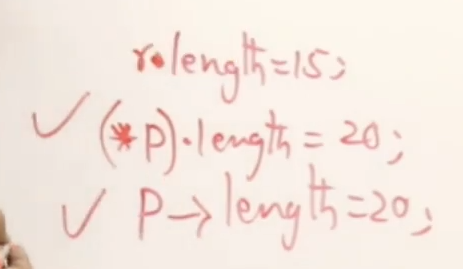 r.length=15;
✓ (*p).length = 20;
✓ P->length=20;